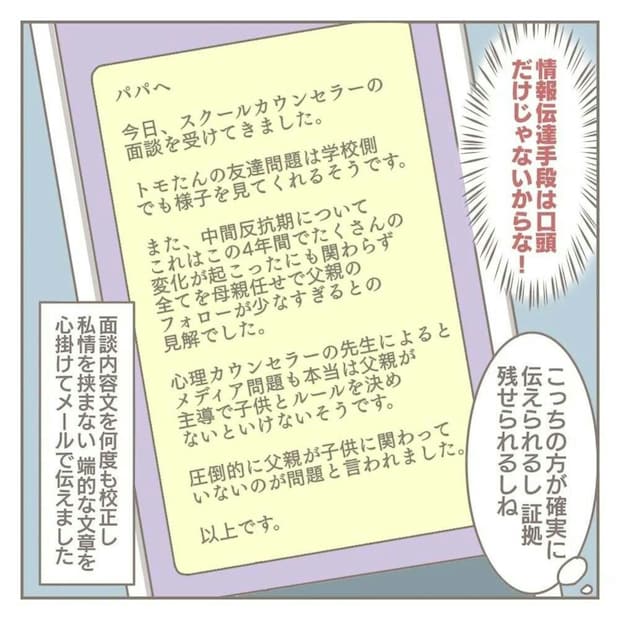 情報伝達手段は口頭
だけじゃないからな！
パパへ
今日、スクールカウンセラーの
面談を受けてきました。
トモたんの友達問題は学校側
でも様子を見てくれるそうです。
また、中間反抗期について
これはこの4年間でたくさんの
変化が起こったにも関わらず
全てを母親任せで父親の
フォローが少なすぎるとの
見解でした。
心理カウンセラーの先生によると
メディア問題も本当は父親が
主導で子供とルールを決め
ないといけないそうです。
圧倒的に父親が子供に関わって
いないのが問題と言われました。
以上です。
こっちの方が確実に
伝えられるし 証拠
残せられるしね
面談内容文を何度も校正し
私情を挟まない 端的な文章を
心掛けてメールで伝えました